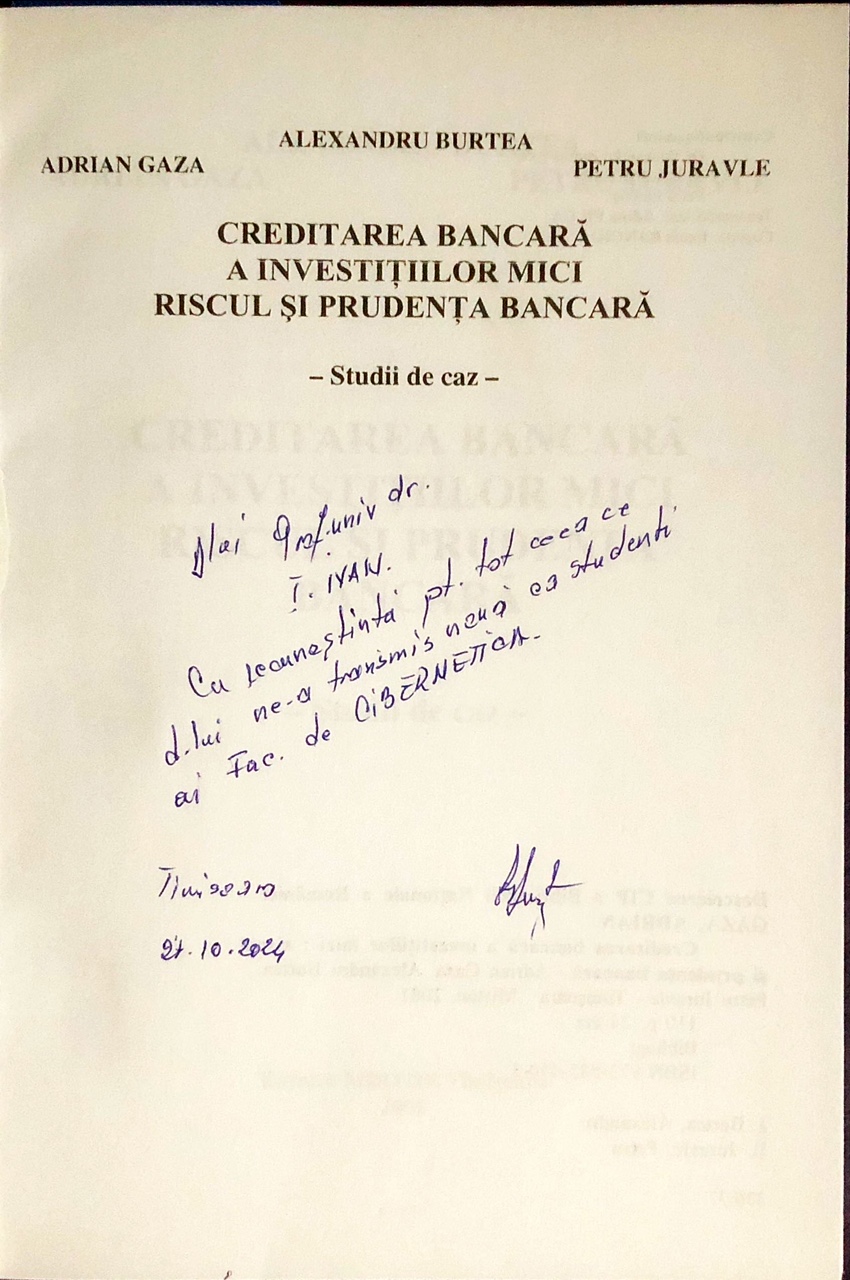 ALEXANDRU BURTEA
ADRIAN GAZA PETRU JURAVLE
CREDITAREA BANCARĂ
A INVESTIȚIILOR MICI
RISCUL ȘI PRUDENȚA BANCARĂ
– Studii de caz –
Dlui Prof. univ dr.
I. IVAN.
Cu recunoștință pt. tot ceea ce
d.lui ne-a transmis nouă ca studenti
ai Fac. de CIBERNETICA.
Timisoara
27.10.2024